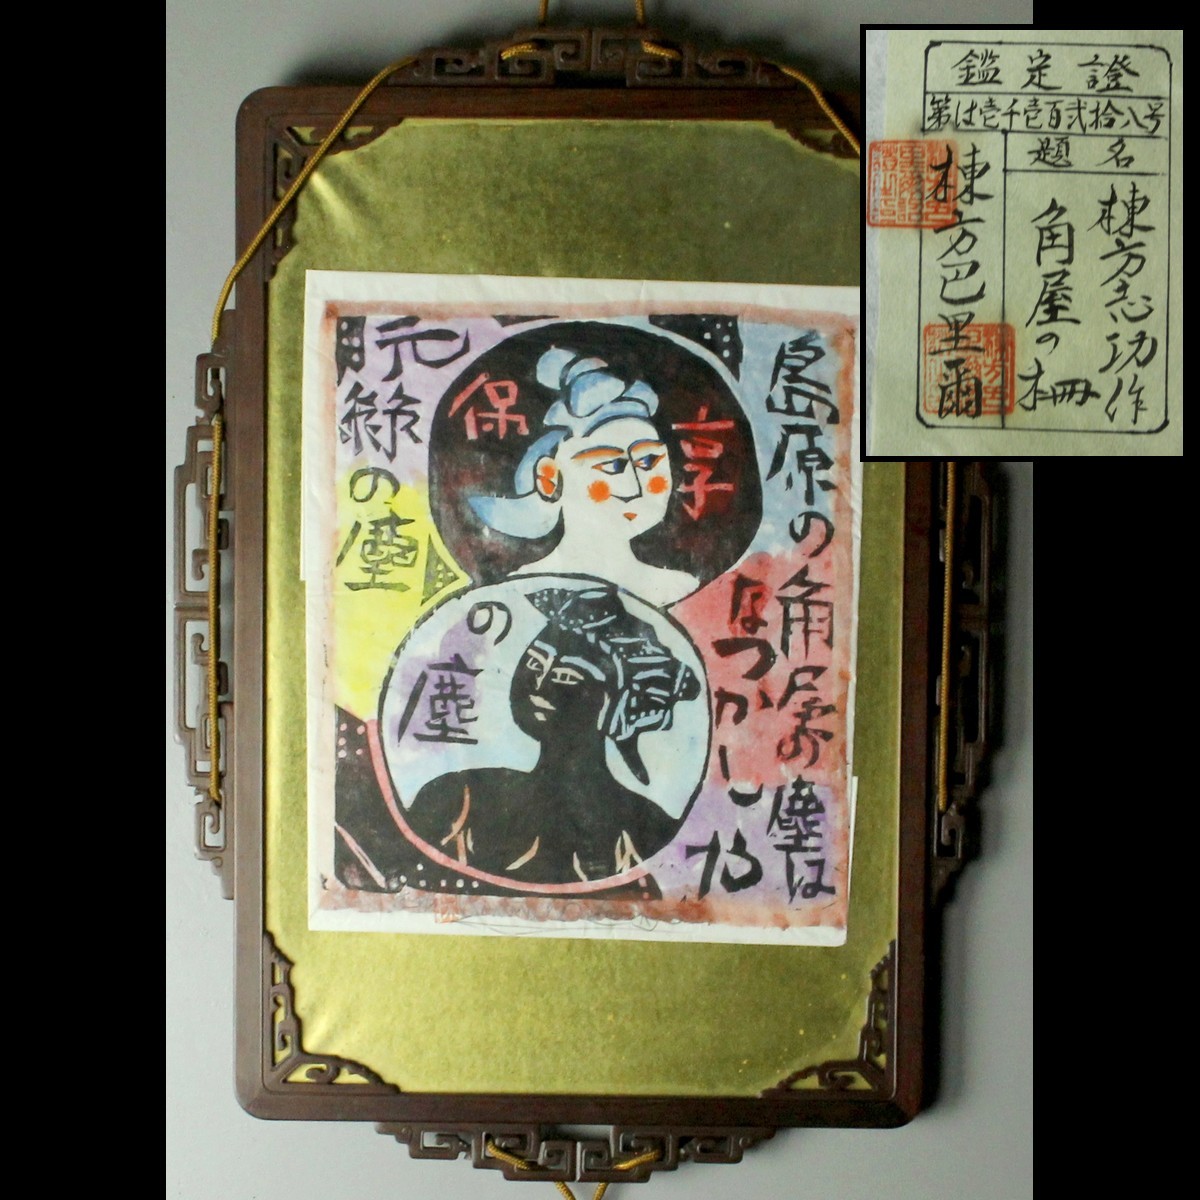 島原の角屋の塵は
なつかし
元禄の塵
享保
の塵
鑑定證
第は壱千壱百弐拾八号
題名
棟方志功作
角屋の柵
棟方巴里爾